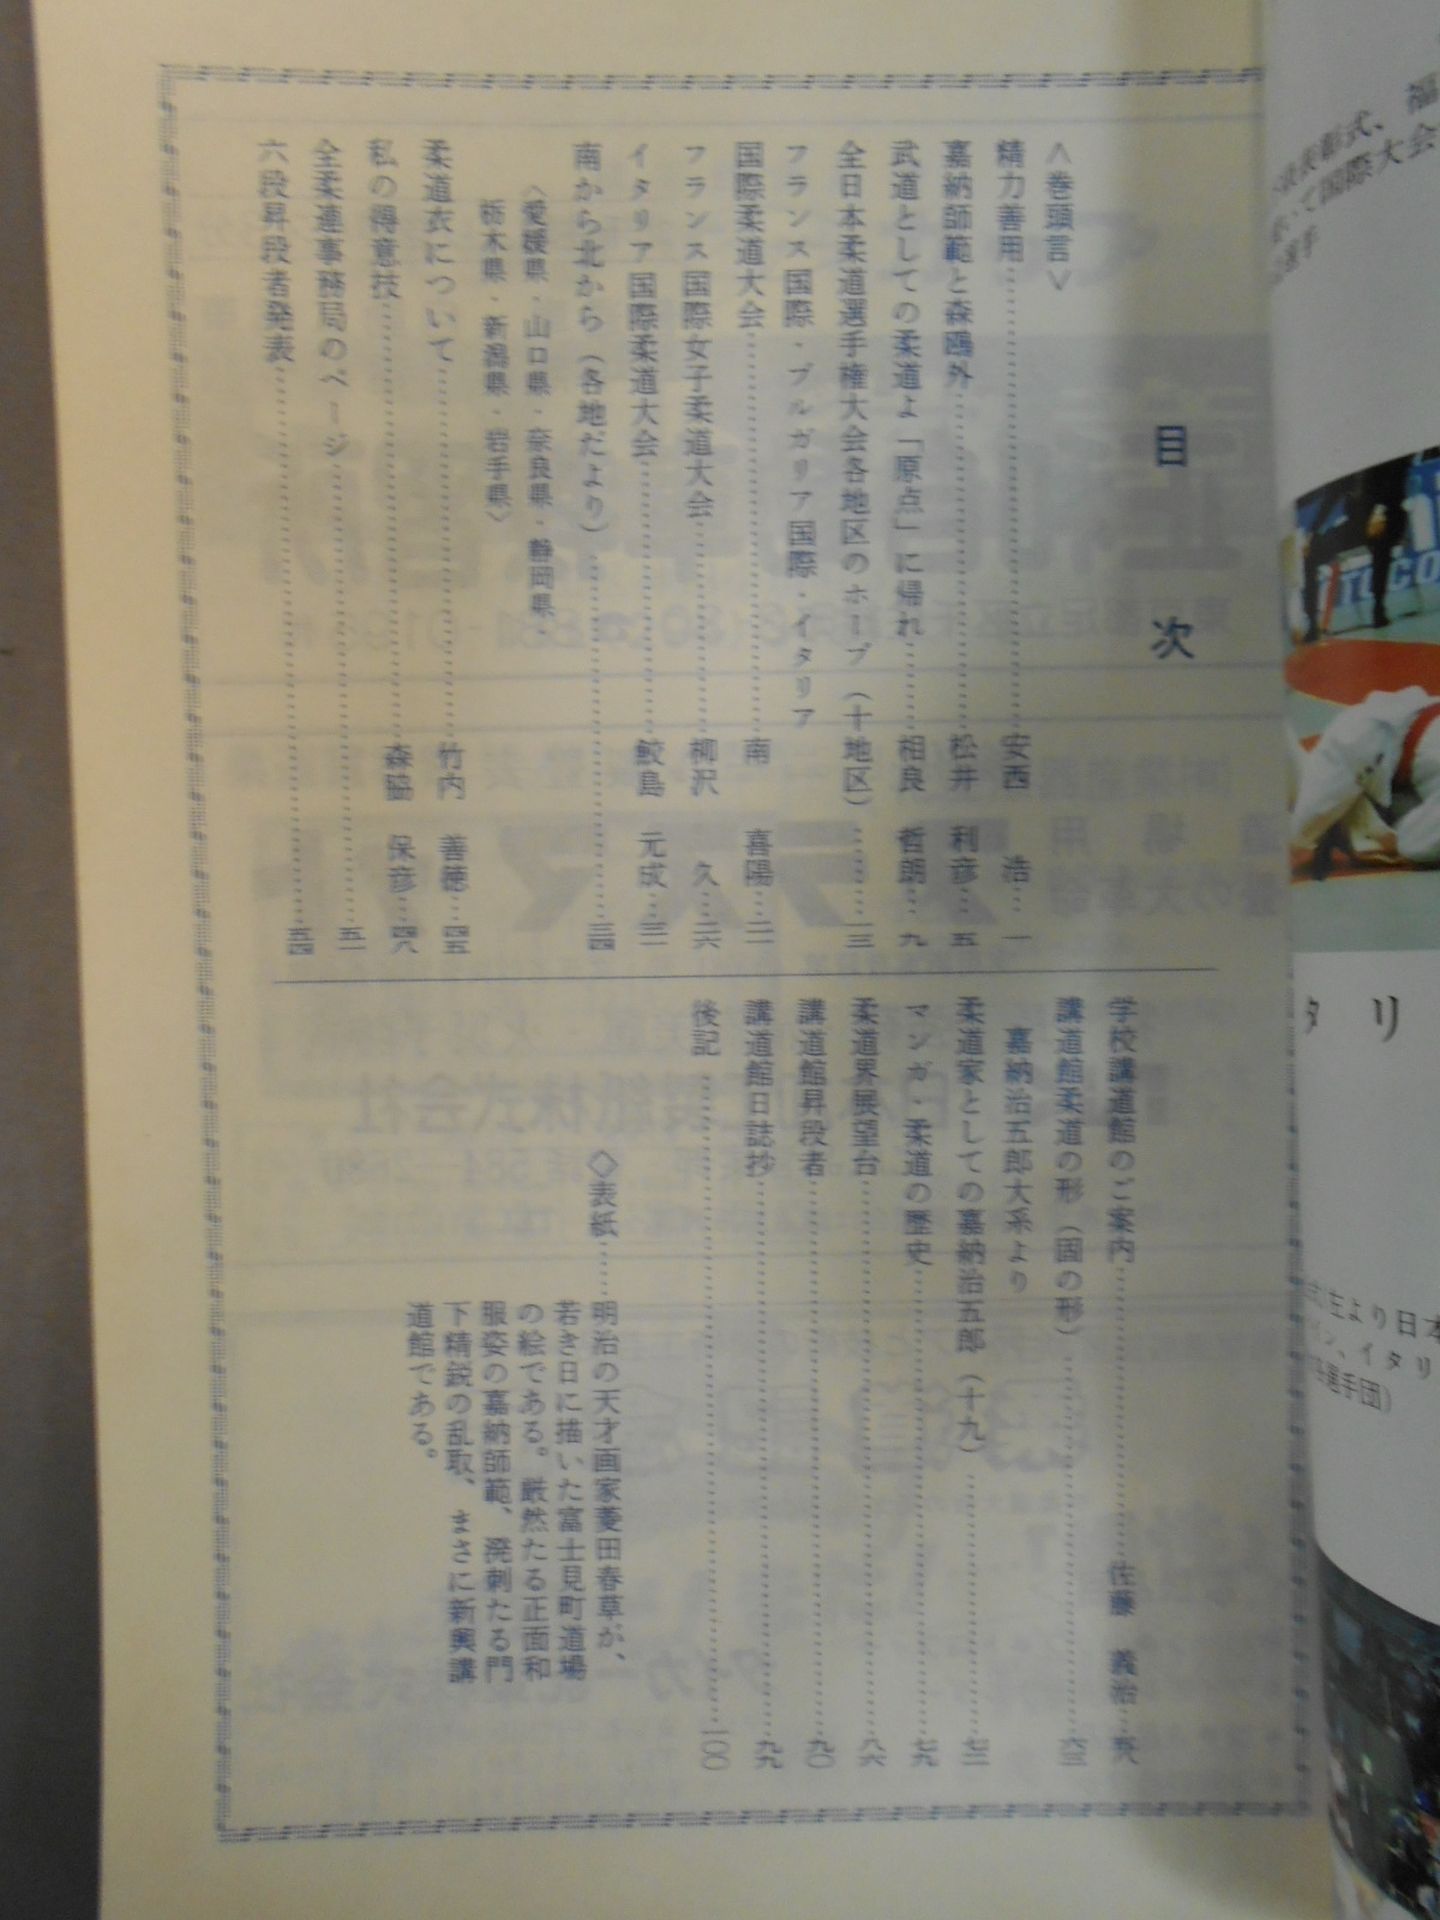 目次
〈巻頭言〉
精力善用……安西 浩…一
嘉納師範と森鴎外……松井 利彦…五
武道としての柔道よ「原点」に帰れ……相良 哲朗…九
全日本柔道選手権大会各地区のホープ（十地区）……一三
フランス国際・ブルガリア国際・イタリア
国際柔道大会……南 喜陽…二一
フランス国際女子柔道大会……柳沢 久…二六
イタリア国際柔道大会……鮫島 元成…三一
南から北から（各地だより）……三四
〈愛媛県・山口県・奈良県・静岡県・
栃木県・新潟県・岩手県〉
柔道衣について……竹内 善徳…四五
私の得意技……森脇 保彦…四八
全柔連事務局のページ……五一
六段昇段者発表……五四
学校講道館のご案内……佐藤 義治…五八
講道館柔道の形（固の形）……六三
嘉納治五郎大系より
柔道家としての嘉納治五郎（十九）……七二
マンガ・柔道の歴史……七九
柔道界展望台……八六
講道館昇段者……九〇
講道館日誌抄……九九
後記……一〇〇
◇表紙……明治の天才画家菱田春草が、
若き日に描いた富士見町道場
の絵である。厳然たる正面和
服姿の嘉納師範、溌剌たる門
下精鋭の乱取、まさに新興講
道館である。
タリ
左より日本
イン、イタリ
選手団）